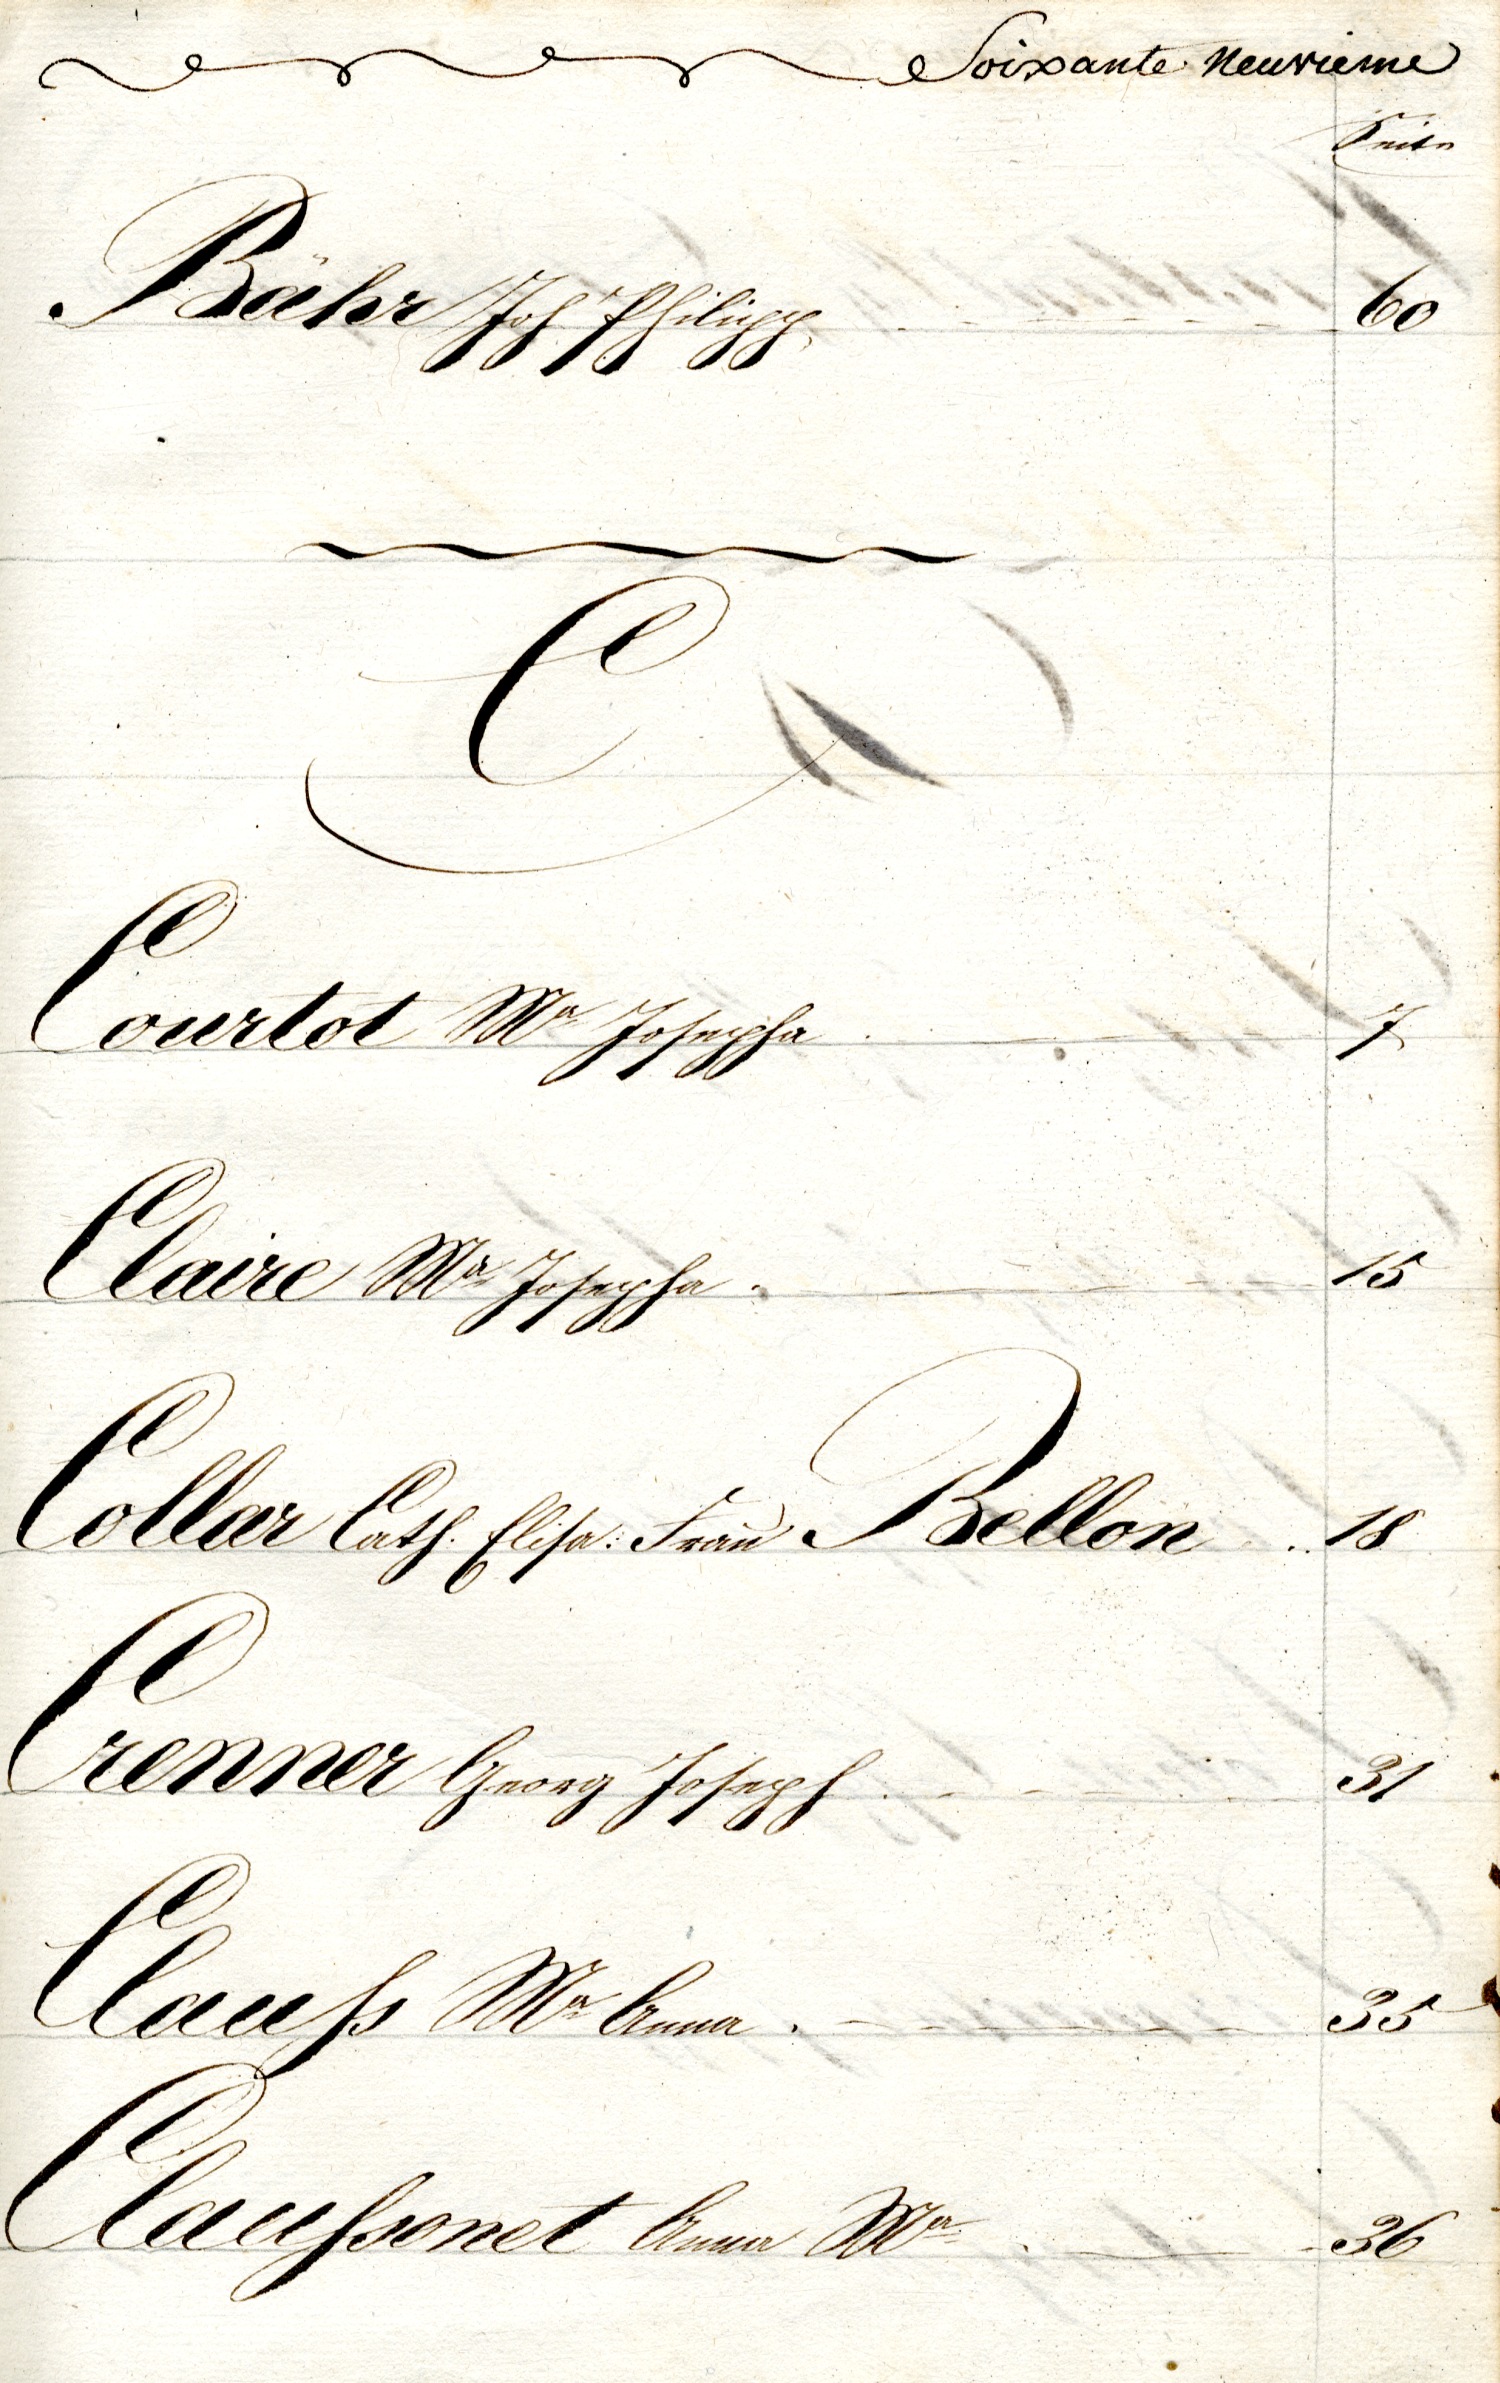 Soixante Neuvieme
Seite
Bähr Joh Philipp. 60
C
Courtot Mª Josepha 7
Claire Mª Josepha 15
Collar Cath. Elisa: Frau Bellon 18
Crenner Georg Joseph 31
Clauß Mª Anna 35
Claußonet Anna Mª 36